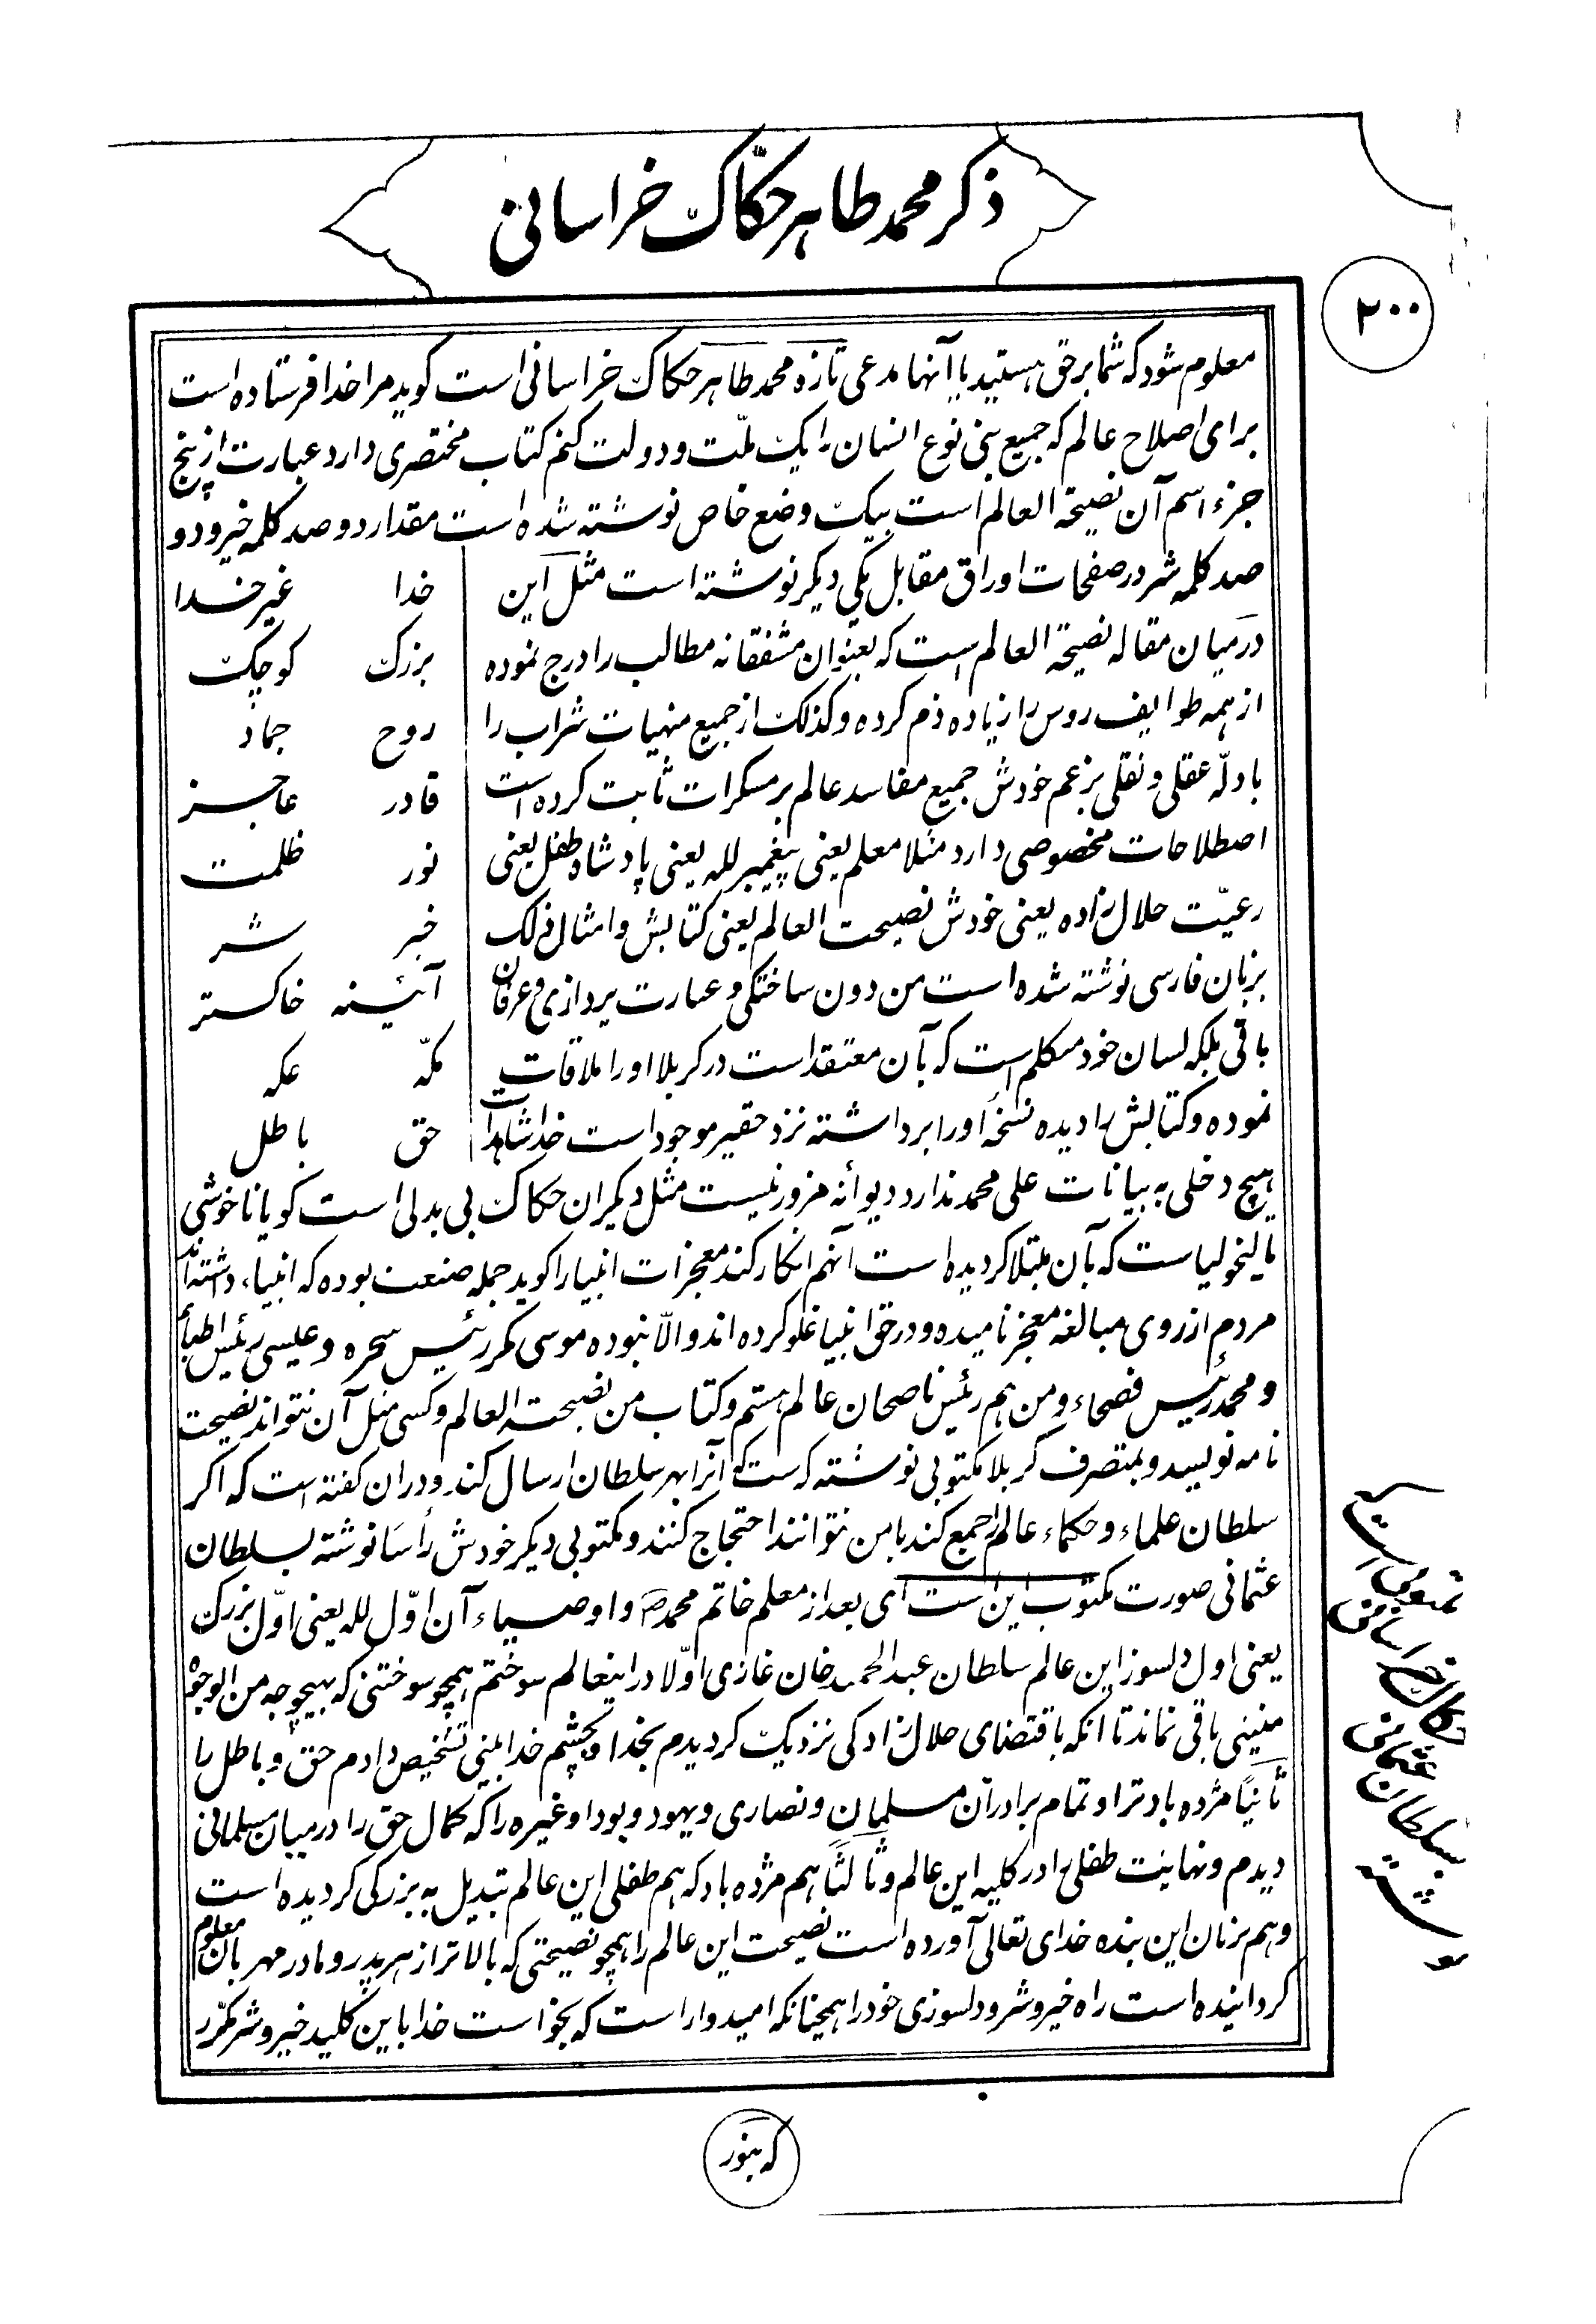 ذکر محمد طاهر حکّاک خراسانی
۲۰۰
معلوم شود که شما بر حق هستید یا آنها مدعی تازه محمد طاهر حکاک خراسانی است کوید مرا خدا فرستاده است
برای اصلاح عالم که جمیع بنی نوع انسان را یک ملّت و دولت کنم کتاب مختصری دارد عبارت از پنج
جزء اسم آن نصیحة العالم است بیک وضع خاص نوشته شده است مقدار دو صد کلمه خیر و دو
صد کلمه شر در صفحات اوراق مقابل یکی دیکر نوشته است مثل این
در میان مقاله نصیحة العالم است که بعنوان مشفقانه مطالب را درج نموده
از همه طوایف روس را زیاده ذم کرده و کذلک از جمیع منهیات شراب را
بادلّه عقلی و نقلی بزعم خودش جمیع مفاسد عالم بر مسکرات ثابت کرده است
اصطلاحات مخصوصی دارد مثلا معلم یعنی پیغمبر لله یعنی پادشاه طفل یعنی
رعیّت حلال زاده یعنی خودش نصیحت العالم یعنی کتابش و امثال ذلک
بزبان فارسی نوشته شده است من دون ساختکی و عبارت پردازی و عرفان
باقی بلکه لسان خود متکلم است که بآن معتقد است در کربلا او را ملاقات
نموده و کتابش را دیده نسخه او را برداشته نزد حقیر موجود است خدا شاهد است
خدا غیر خدا
بزرک کوچک
روح جماد
قادر عاجز
نور ظلمت
خیر شر
آئینه خاکستر
مکّه عکه
حق باطل
هیچ دخلی به بیانات علی محمد ندارد دیوانه مزور نیست مثل دیکران حکاک بی بدلی است کویا ناخوشی
مالیخولیاست که بآن مبتلا کردیده است آنهم انکار کند معجزات انبیا را کوید جمله صنعت بوده که انبیاء داشته‌اند
مردم از روی مبالغه معجز نامیده و در حق انبیا غلو کرده اند و الّا نبوده موسی مکر رئیس سحره و عیسی رئیس اطباء
و محمد رئیس فصحاء و من هم رئیس ناصحان عالم هستم و کتاب من نصیحت العالم و کسی مثل آن نتواند نصیحت
نامه نویسد و بمتصرف کربلا مکتوبی نوشته که آنرا بهر سلطان ارسال کند و در آن کفته است که اکر
سلطان علماء و حکماء عالم را جمع کند با من نتوانند احتجاج کنند و مکتوبی دیکر خودش رأسا نوشته بسلطان
عثمانی صورت مکتوب این است ای بعد از معلم خاتم محمد ص و اوصیاء آن اوّل لله یعنی اوّل بزرک
یعنی اول دلسوز این عالم سلطان عبد الحمید خان غازی اوّلا در اینعالم سوختم همچو سوختنی که بهیچوجه من الوجوه
منینی باقی نماند تا آنکه باقتضای حلال زادکی نزدیک کردیدم بخدا و بچشم خدا بینی تشخیص دادم حق و باطل را
ثانیًا مژده باد ترا و تمام برادران مسلمان و نصاری و یهود و بودا و غیره را که کمال حق را در میان مسلمانی
دیدم و نهایت طفلی را در کلیه این عالم و ثالثًا هم مژده باد که هم طفلی این عالم تبدیل به بزرکی کردیده است
و هم بزبان این بنده خدای تعالی آورده است نصیحت این عالم را همچو نصیحتی که بالاتر از هر پدر و مادر مهربان معلوم
کردانیده است راه خیر و شر و دلسوزی خود را همچنانکه امیدوار است که بخواست خدا باین کلید خیر و شر مکرّر
حکاک خراسانی
بسلطان عثمانی
نوشته
که بنور